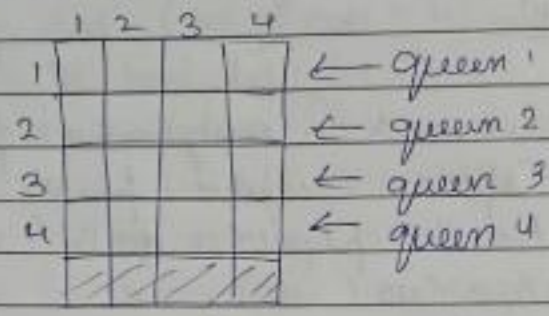 1 2 3 4
1 ← queen 1
2 ← queen 2
3 ← queen 3
4 ← queen 4